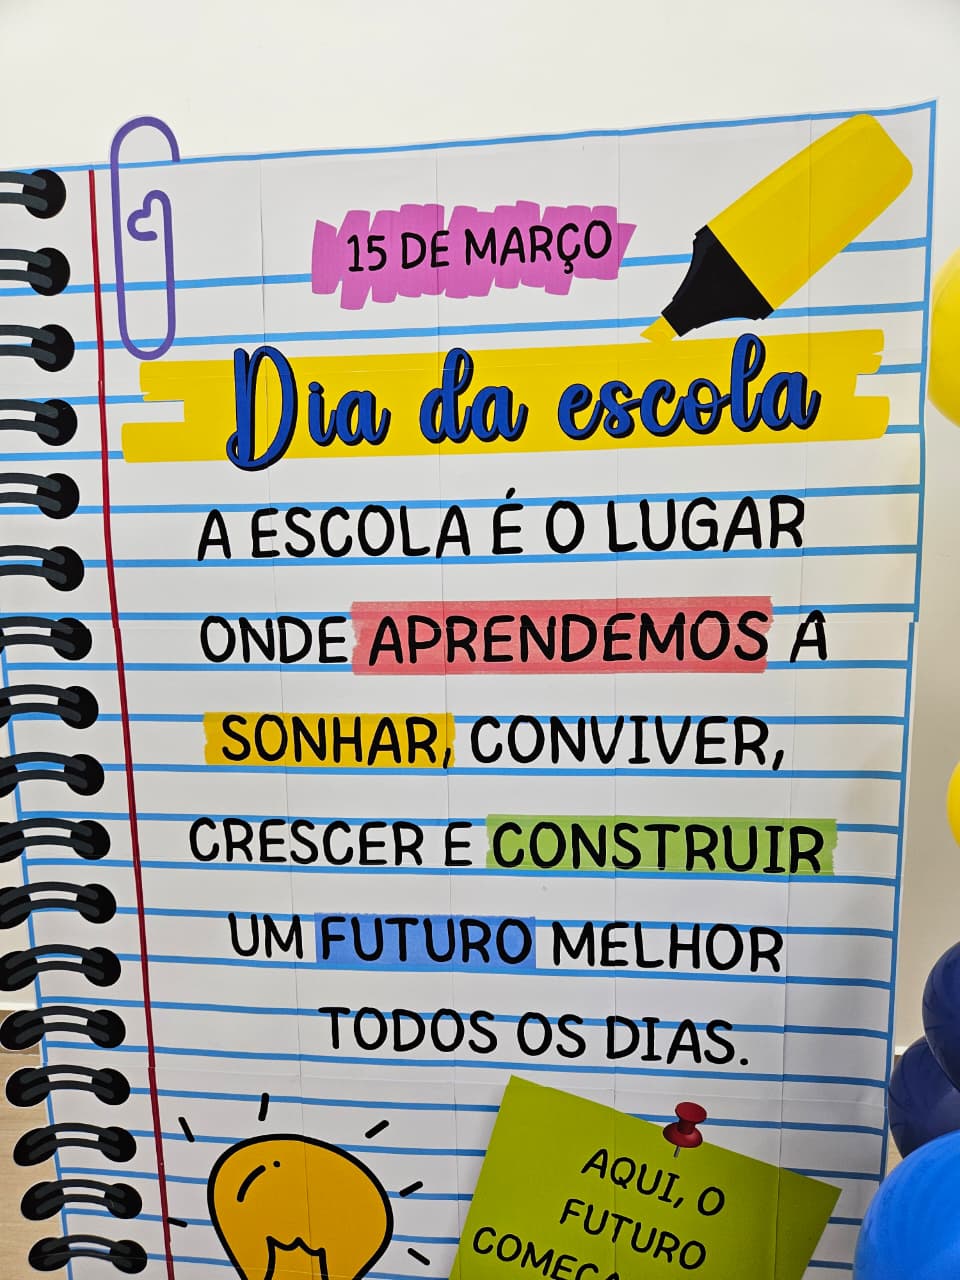 15 DE MARÇO
Dia da escola
A ESCOLA É O LUGAR
ONDE APRENDEMOS A
SONHAR, CONVIVER,
CRESCER E CONSTRUIR
UM FUTURO MELHOR
TODOS OS DIAS.
AQUI, O
FUTURO